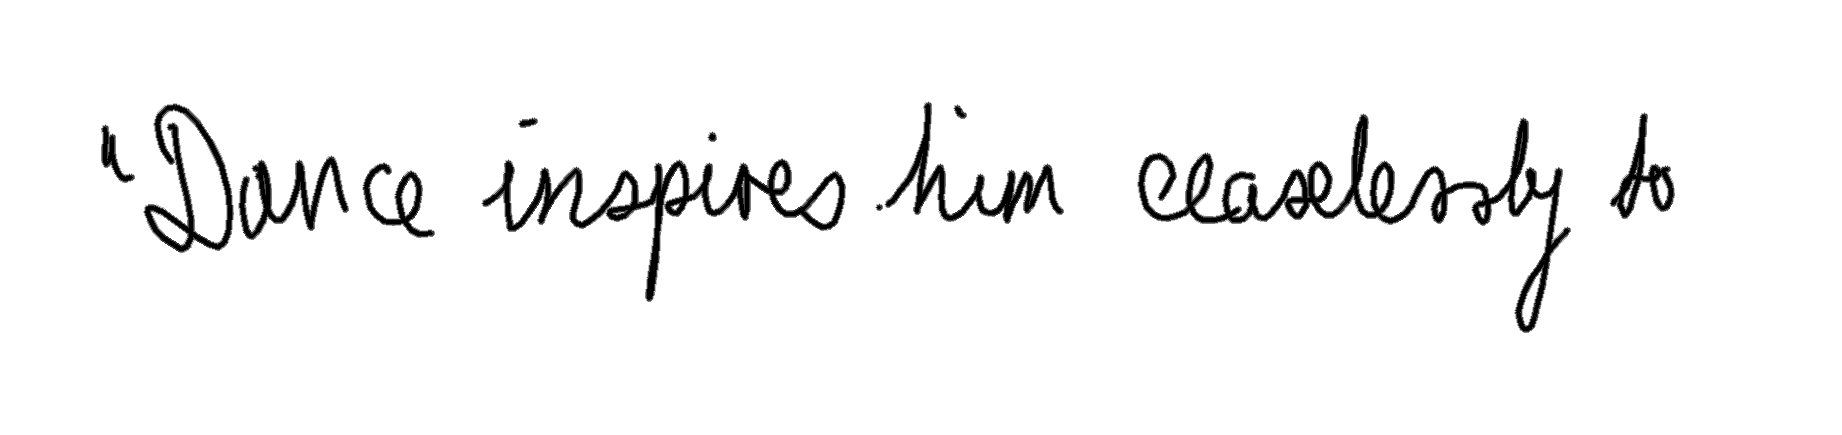 "Dance inspires him ceaselessly to